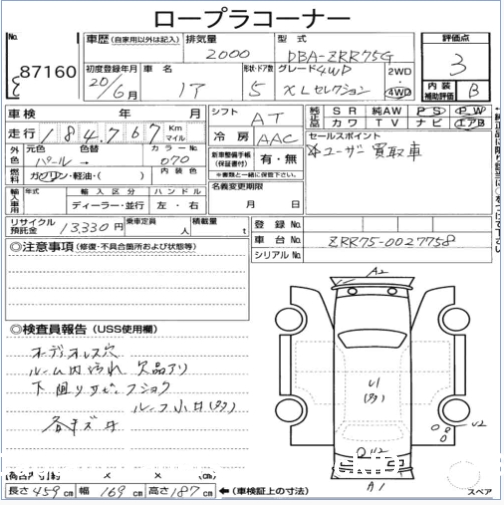 ロープラコーナー
No.
87160
車歴(自家用以外は記入)
排気量
2000
型式
DBA-ZRR75G
評価点
3
初度登録年月
20/6月
車名
形状・ドア数
5
グレード 4WD
XLセレクション
2WD
4WD
内装
補助評価
B
車検 年 月
シフト
AT
純正品
SR 純AW PS PW
カワ TV ナビ エアB
走行 184,767 Km マイル
冷房
AAC
セールスポイント
*ユーザー買取車
外色
元色 色替 カラーNo.
パール→ 070
新車整備手帳
(保証書付)
有・無
※書類と一緒に保管下さい。
燃料
ガソリン・軽油・( )
内装色
名義変更期限
月 日
輸入車用
年式
輸入区分
ハンドル
ディーラー・並行
左・右
リサイクル預託金
13,330円
乗車定員
人
積載量
t
登録No.
車台No.
ZRR75-0027758
シリアルNo.
◎注意事項(修復・不具合箇所および状態等)
◎検査員報告(USS使用欄)
オーディオレス穴
ルーム内汚れ 欠品アリ
下廻りサビ・フショク
A2
U1
U2
A1
長さ459cm 幅169cm 高さ187cm
←(車検証上の寸法)
スペア